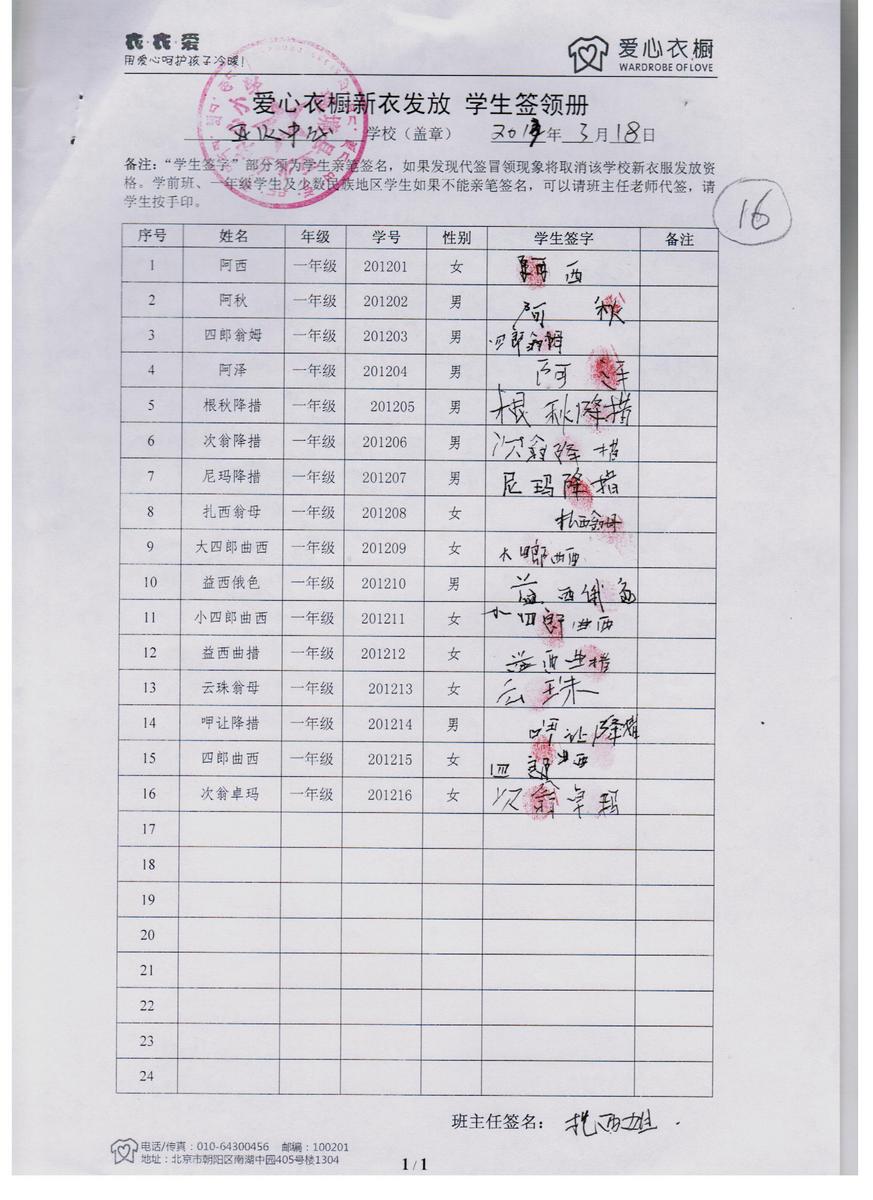 衣·衣·爱
用爱心呵护孩子冷暖！
爱心衣橱
WARDROBE OF LOVE
爱心衣橱新衣发放 学生签领册
学校（盖章） 2013年 3月18日
备注：“学生签字”部分须为学生亲笔签名，如果发现代签冒领现象将取消该学校新衣服发放资
格。学前班、一年级学生及少数民族地区学生如果不能亲笔签名，可以请班主任老师代签，请
学生按手印。
16
序号 姓名 年级 学号 性别 学生签字 备注
1 阿西 一年级 201201 女 阿西
2 阿秋 一年级 201202 男 阿秋
3 四郎翁姆 一年级 201203 男 四郎翁姆
4 阿泽 一年级 201204 男 阿泽
5 根秋降措 一年级 201205 男 根秋降措
6 次翁降措 一年级 201206 男 次翁降措
7 尼玛降措 一年级 201207 男 尼玛降措
8 扎西翁母 一年级 201208 女 扎西翁母
9 大四郎曲西 一年级 201209 女 大四郎曲西
10 益西俄色 一年级 201210 男 益西俄色
11 小四郎曲西 一年级 201211 女 小四郎曲西
12 益西曲措 一年级 201212 女 益西曲措
13 云珠翁母 一年级 201213 女 云珠
14 呷让降措 一年级 201214 男 呷让降措
15 四郎曲西 一年级 201215 女 四郎曲西
16 次翁卓玛 一年级 201216 女 次翁卓玛
17
18
19
20
21
22
23
24
班主任签名： 扎西雄
电话/传真：010-64300456 邮编：100201
地址：北京市朝阳区南湖中园405号楼1304
1 / 1